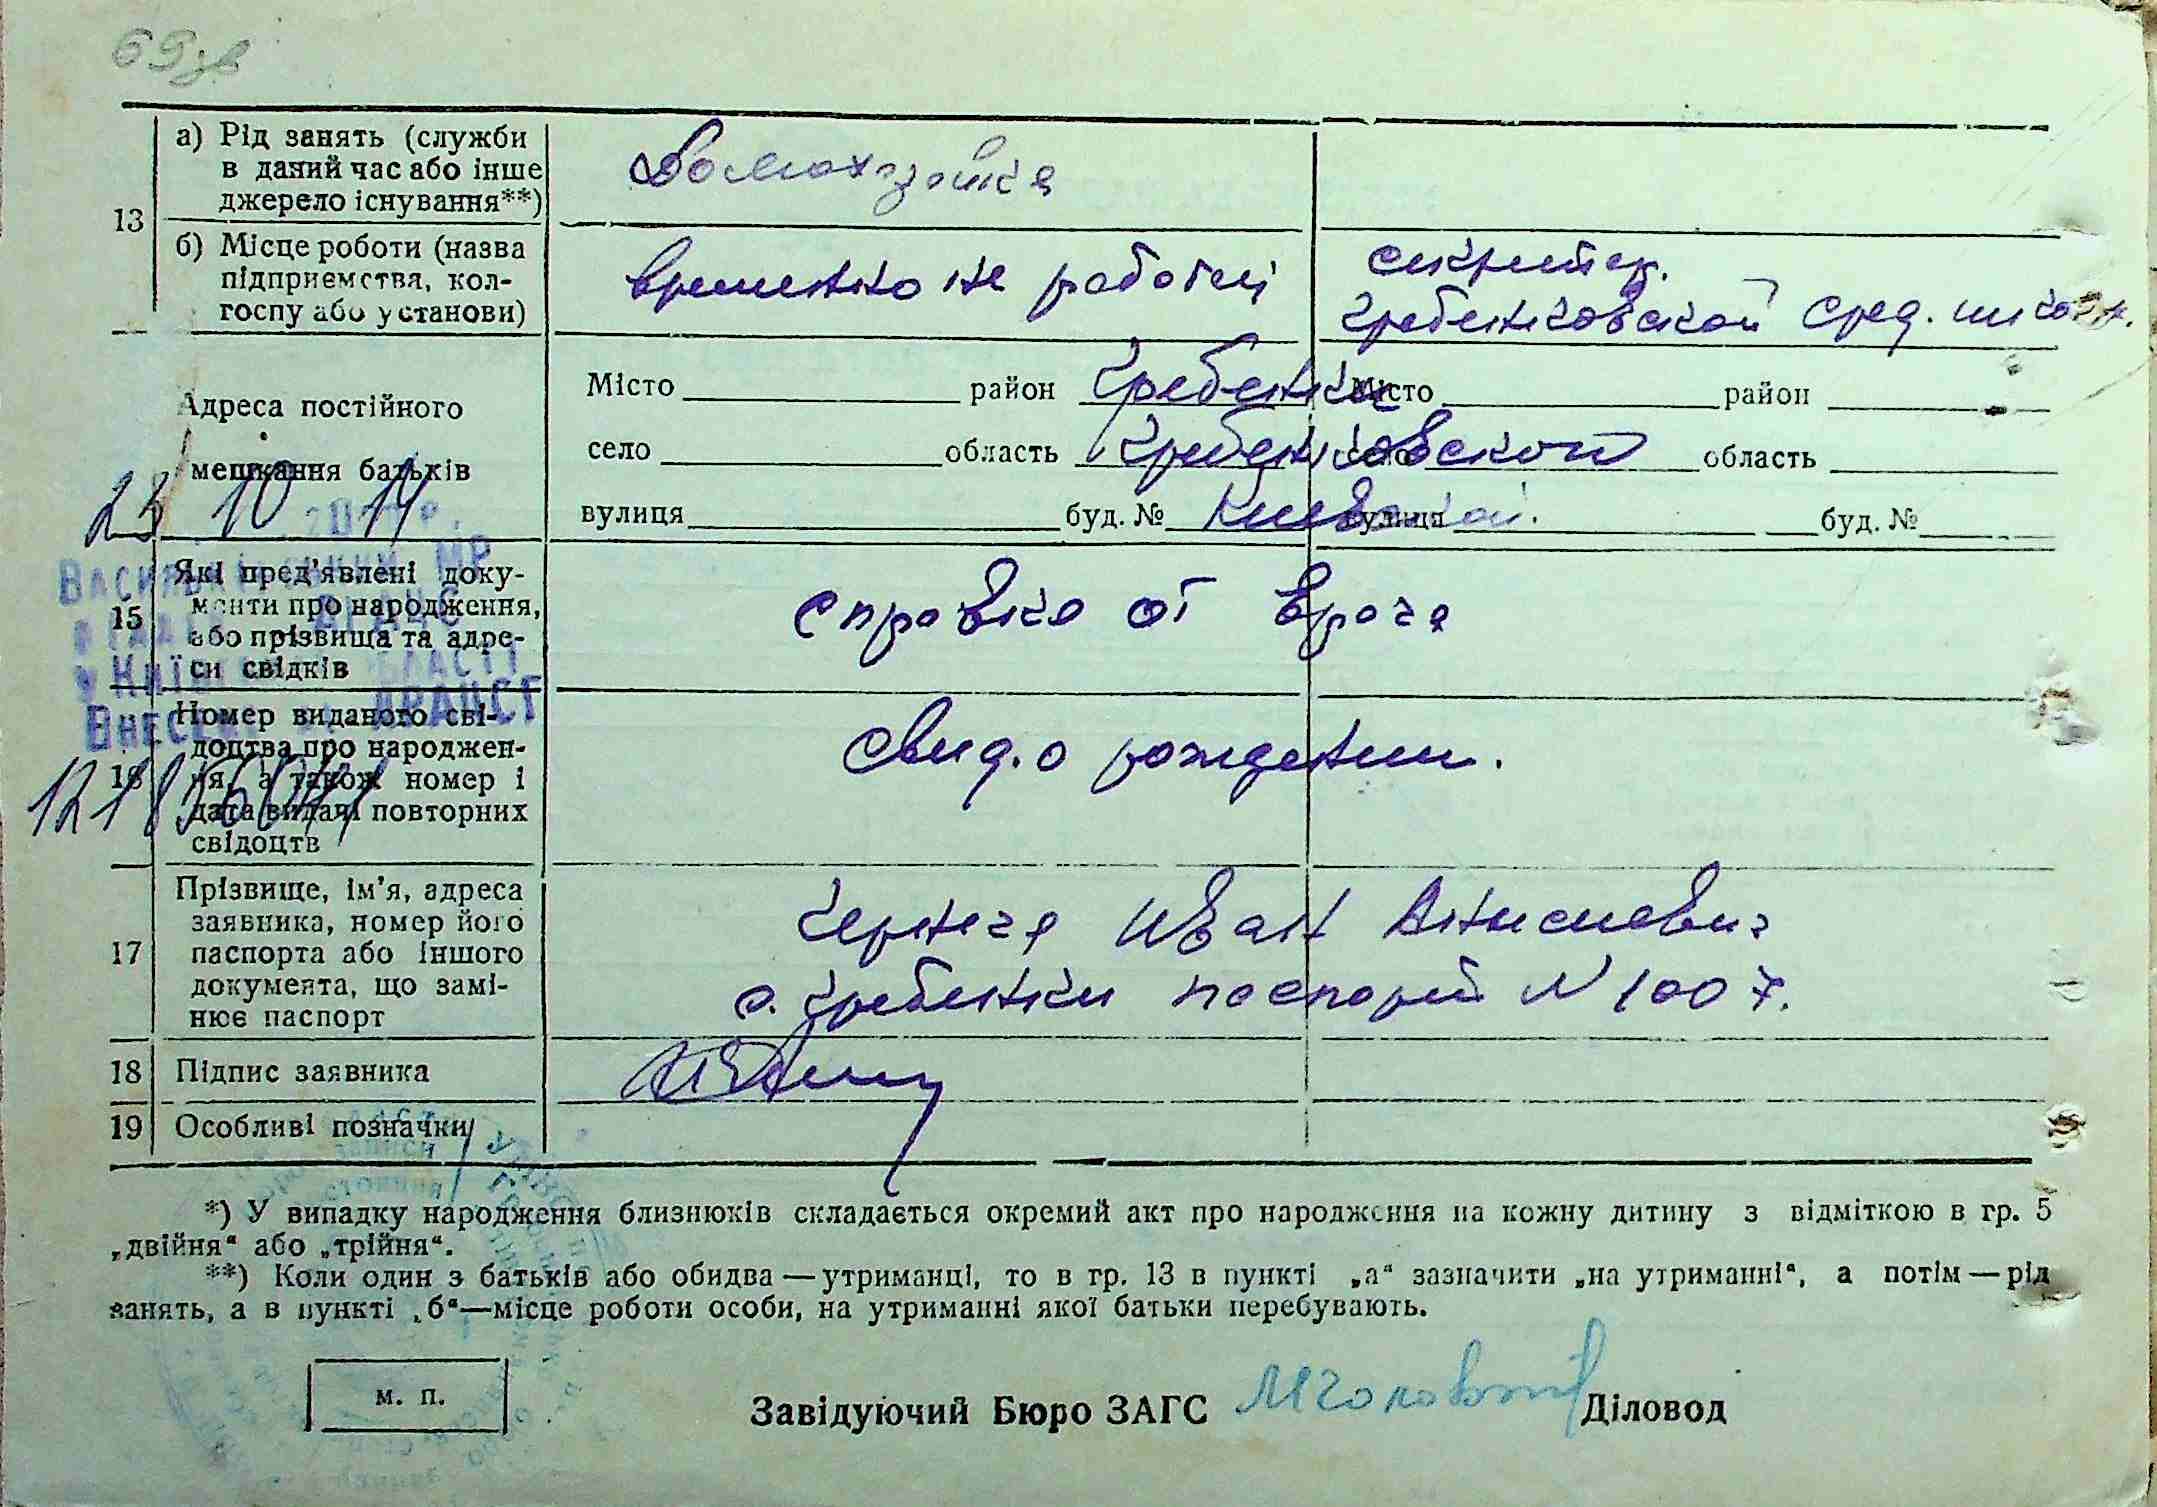 69зв
13
а) Рід занять (служби
в даний час або інше
джерело існування**)
Домохозяйка
б) Місце роботи (назва
підприємства, кол-
госпу або установи)
временно не работает
секретар.
Гребенковской сред. школы.
Адреса постійного
мешкання батьків
Місто район Гребенки
село область Гребенковской
вулиця буд. № Киевской.
Місто район
область
вулиця буд. №
23 10 14
15
Які пред'явлені доку-
менти про народження,
або прізвища та адре-
си свідків
справка от врача
16
Номер виданого сві-
доцтва про народжен-
ня, а також номер і
дата видачі повторних
свідоцтв
свид. о рождении.
17
Прізвище, ім'я, адреса
заявника, номер його
паспорта або іншого
документа, що замі-
нює паспорт
Иван
с. Гребенки паспорт N 1007.
18
Підпис заявника
19
Особливі позначки
*) У випадку народження близнюків складається окремий акт про народження на кожну дитину з відміткою в гр. 5
„двійня“ або „трійня“.
**) Коли один з батьків або обидва — утриманці, то в гр. 13 в пункті „а“ зазначити „на утриманні“, а потім — рід
занять, а в пункті „б“—місце роботи особи, на утриманні якої батьки перебувають.
м. п.
Завідуючий Бюро ЗАГС
Діловод